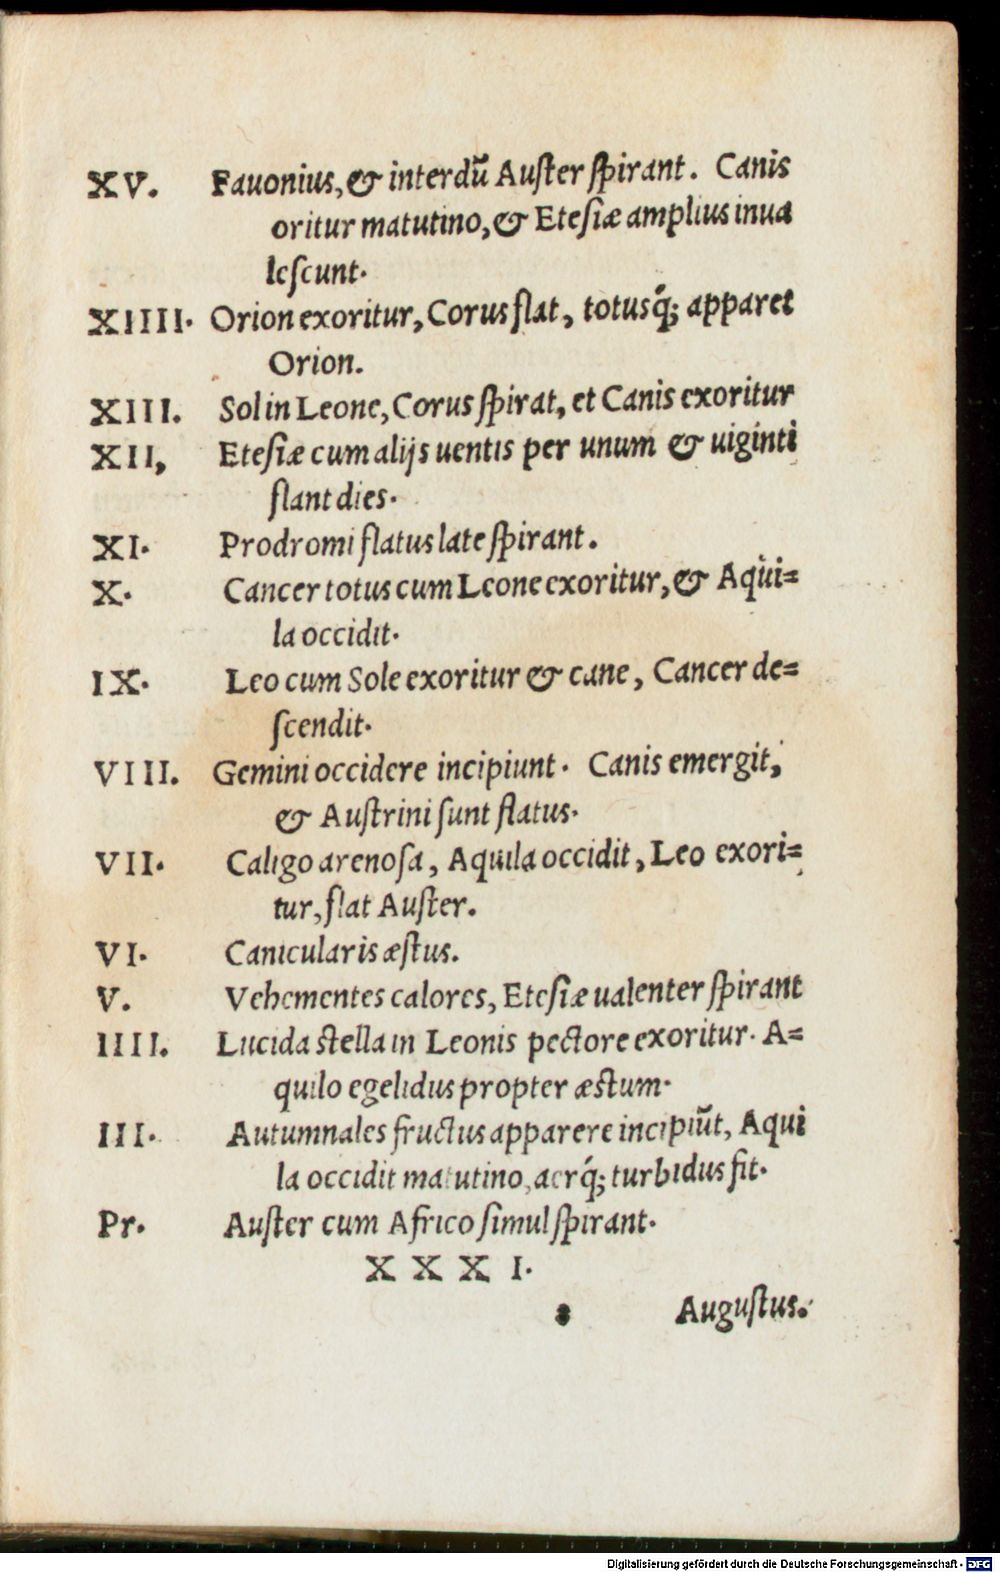 XV. Fauonius, & interdū Auster spirant. Canis
oritur matutino, & Etesiæ amplius inua
lescunt.
XIIII. Orion exoritur, Corus flat, totusq́; apparet
Orion.
XIII. Sol in Leone, Corus spirat, et Canis exoritur
XII, Etesiæ cum alijs uentis per unum & uiginti
flant dies.
XI. Prodromi flatus late spirant.
X. Cancer totus cum Leone exoritur, & Aqui=
la occidit.
IX. Leo cum Sole exoritur & cane, Cancer de=
scendit.
VIII. Gemini occidere incipiunt. Canis emergit,
& Austrini sunt flatus.
VII. Caligo arenosa, Aquila occidit, Leo exori=
tur, flat Auster.
VI. Canicularis æstus.
V. Vehementes calores, Etesiæ ualenter spirant
IIII. Lucida stella in Leonis pectore exoritur. A=
quilo egelidus propter æstum.
III. Autumnales fructus apparere incipiūt, Aqui
la occidit matutino, aerq́; turbidus fit.
Pr. Auster cum Africo simul spirant.
XXXI.
8 Augustus.
Digitalisierung gefördert durch die Deutsche Forschungsgemeinschaft - DFG